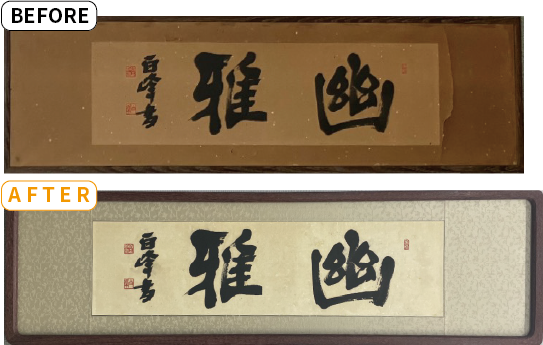 BEFORE
幽雅
百峯書
AFTER
幽雅
百峯書